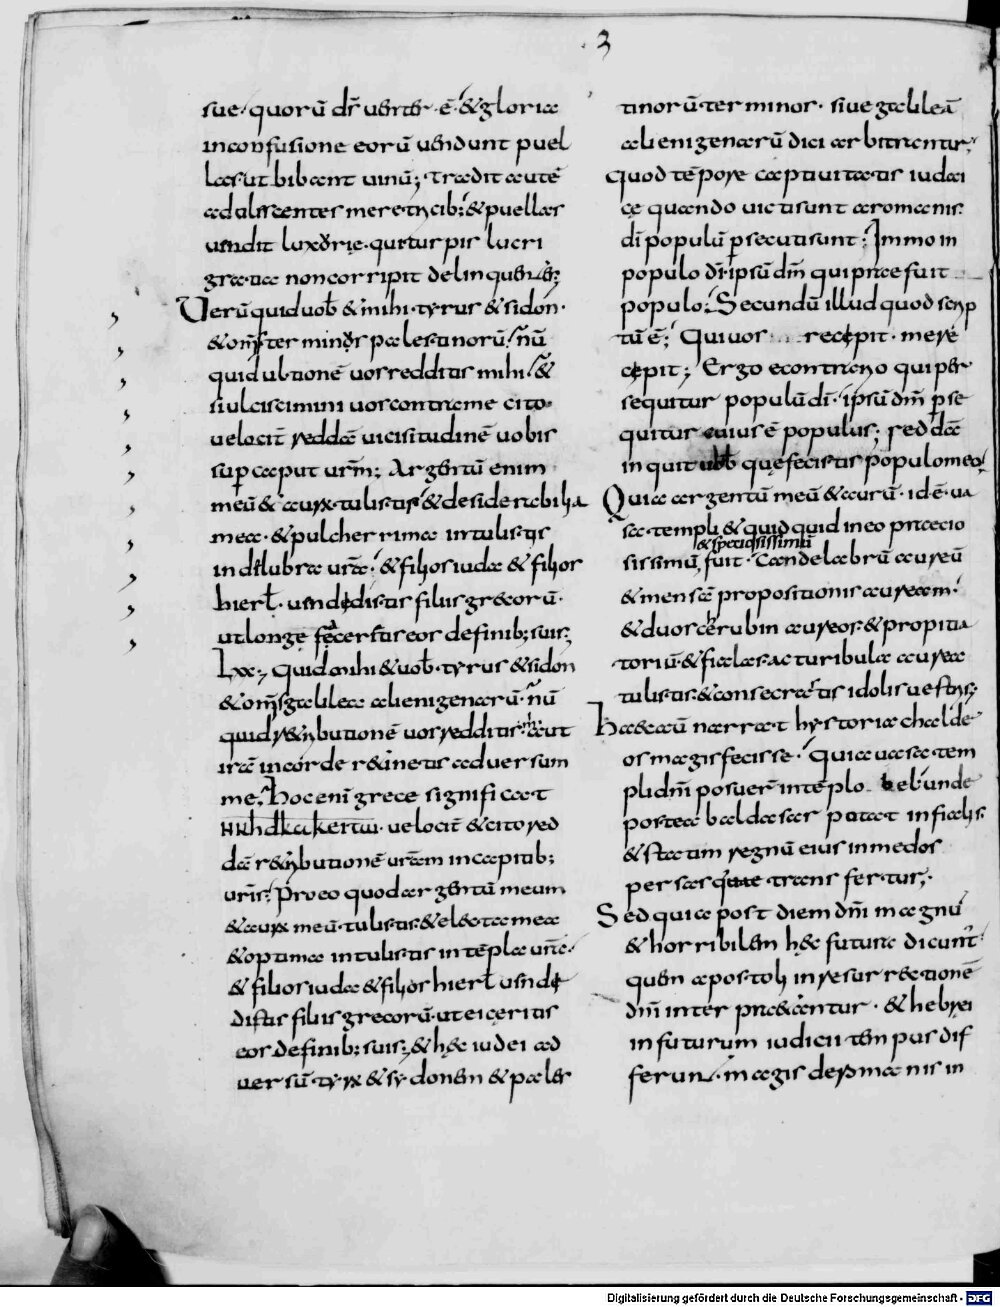 3
sue. quorū dr̄ uenter ē. & gloria
inconfusione eorū uendunt puel
las ut bibant uinū; tradit aute
adaliscentes meretricib; & puellas
uendit luxorię. qui turpis lucri
gratia non corripit delinquentes;
Uerū quid uob̄ & mihi. tyrus & sidon.
& om̄s terminos palestinorū. nū
quid ultionē uos redditis mihi. &
si ulciscimini uos contra me cito.
velocit̄ reddā uicisitudinē uobis
sup caput urm̄; Argentū enim
meū & aurū. tulistis & desiderabilia
mea. & pulcherrima intulistis
in delubra urā. & filios iuda & filios
hierl. uendedistis filiis grecorū.
ut longe fecerētis eos definib; suis;
Lxx; Quid mihi & uob̄. tyrus & sidon
& om̄s galilea alienigenarū. nū
quid retributionē uos redditis m̄. aut
irā in corde retinetis aduersum
me. hoc enī grece significat
velocit̄ & cito red
dā retributionē urām in capitib;
uris. Pro eo quod argentū meum
& aurū meū. tulistis. & electa mea
& optima intulistis in tēpla urā.
& filios iuda & filios hierl uende
distis filiis grecorū. ut eiceritis
eos definib; suis; & hęc iudei ad
uersū. tyrū & sydonem & pales
tinorū terminos. siue galileā
alienigenarū dici arbitrantur.
Quod tēpore captiuitatis iudai
cę quando uicti sunt a romanis.
dī populū psecuti sunt; Immo in
populo dī. ipsū dm̄ qui prae fuit
populo; Secundū illud quod scrip
tū ē; Qui uos recępit. me re
cępit; Ergo e contrario qui per
sequitur populū dī. ipsū dm̄ pse
quitur cuius ē populus; reddā
inquit uob̄ quę fecistis populo meo.
Quia argentū meū & aurū. id ē. ua
sa templi & quidquid in eo praecio
& speciosissimū
sissimū fuit. Candelabrū aureū
& mensā propositionis auream.
& duos cherubin aureos. & propitia
toriū. & fialas. ac turibula aurea
tulistis. & consecratis idolis uestris;
Haec autū narrat hystoria chalde
os magis fecisse. Quia uasa tem
pli dn̄i posuer̄ in tēplo bel. unde
postea baldasar potat in fialis.
& statim regnū eius in medos
persasque transfertur;
Sed quia post diem dn̄i magnū
& horribilem hęc futura dicunt̄
quem apostoli in resurrectionē
dn̄i interpraetantur. & hebręi
in futurum iudicii tempus dif
ferunt. magis de romanis in
Digitalisierung gefördert durch die Deutsche Forschungsgemeinschaft - DFG